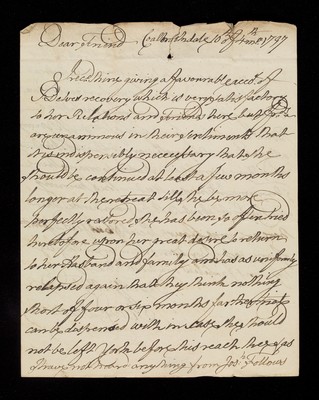 Dear Friend Coalbrookdale 10th of 1mo 1797
I rec'd thine giving a favourable acc't of
recovery which is very satisfactory
to her Relations and friends here but they
are unanimous in their sentiments that
it is indispensibly necessary that she
should be continued at least a few months
longer at the retreat till she be more
perfectly restored she has been so often tried
heretofore upon her great desire to return
to her Husband and family and has as uniformly
relapsed again that they think nothing
short of four or six months farther trial
can be dispensed with in case they should
not be left York before this reach thee as
I have not heard any thing from Jos: Fellows